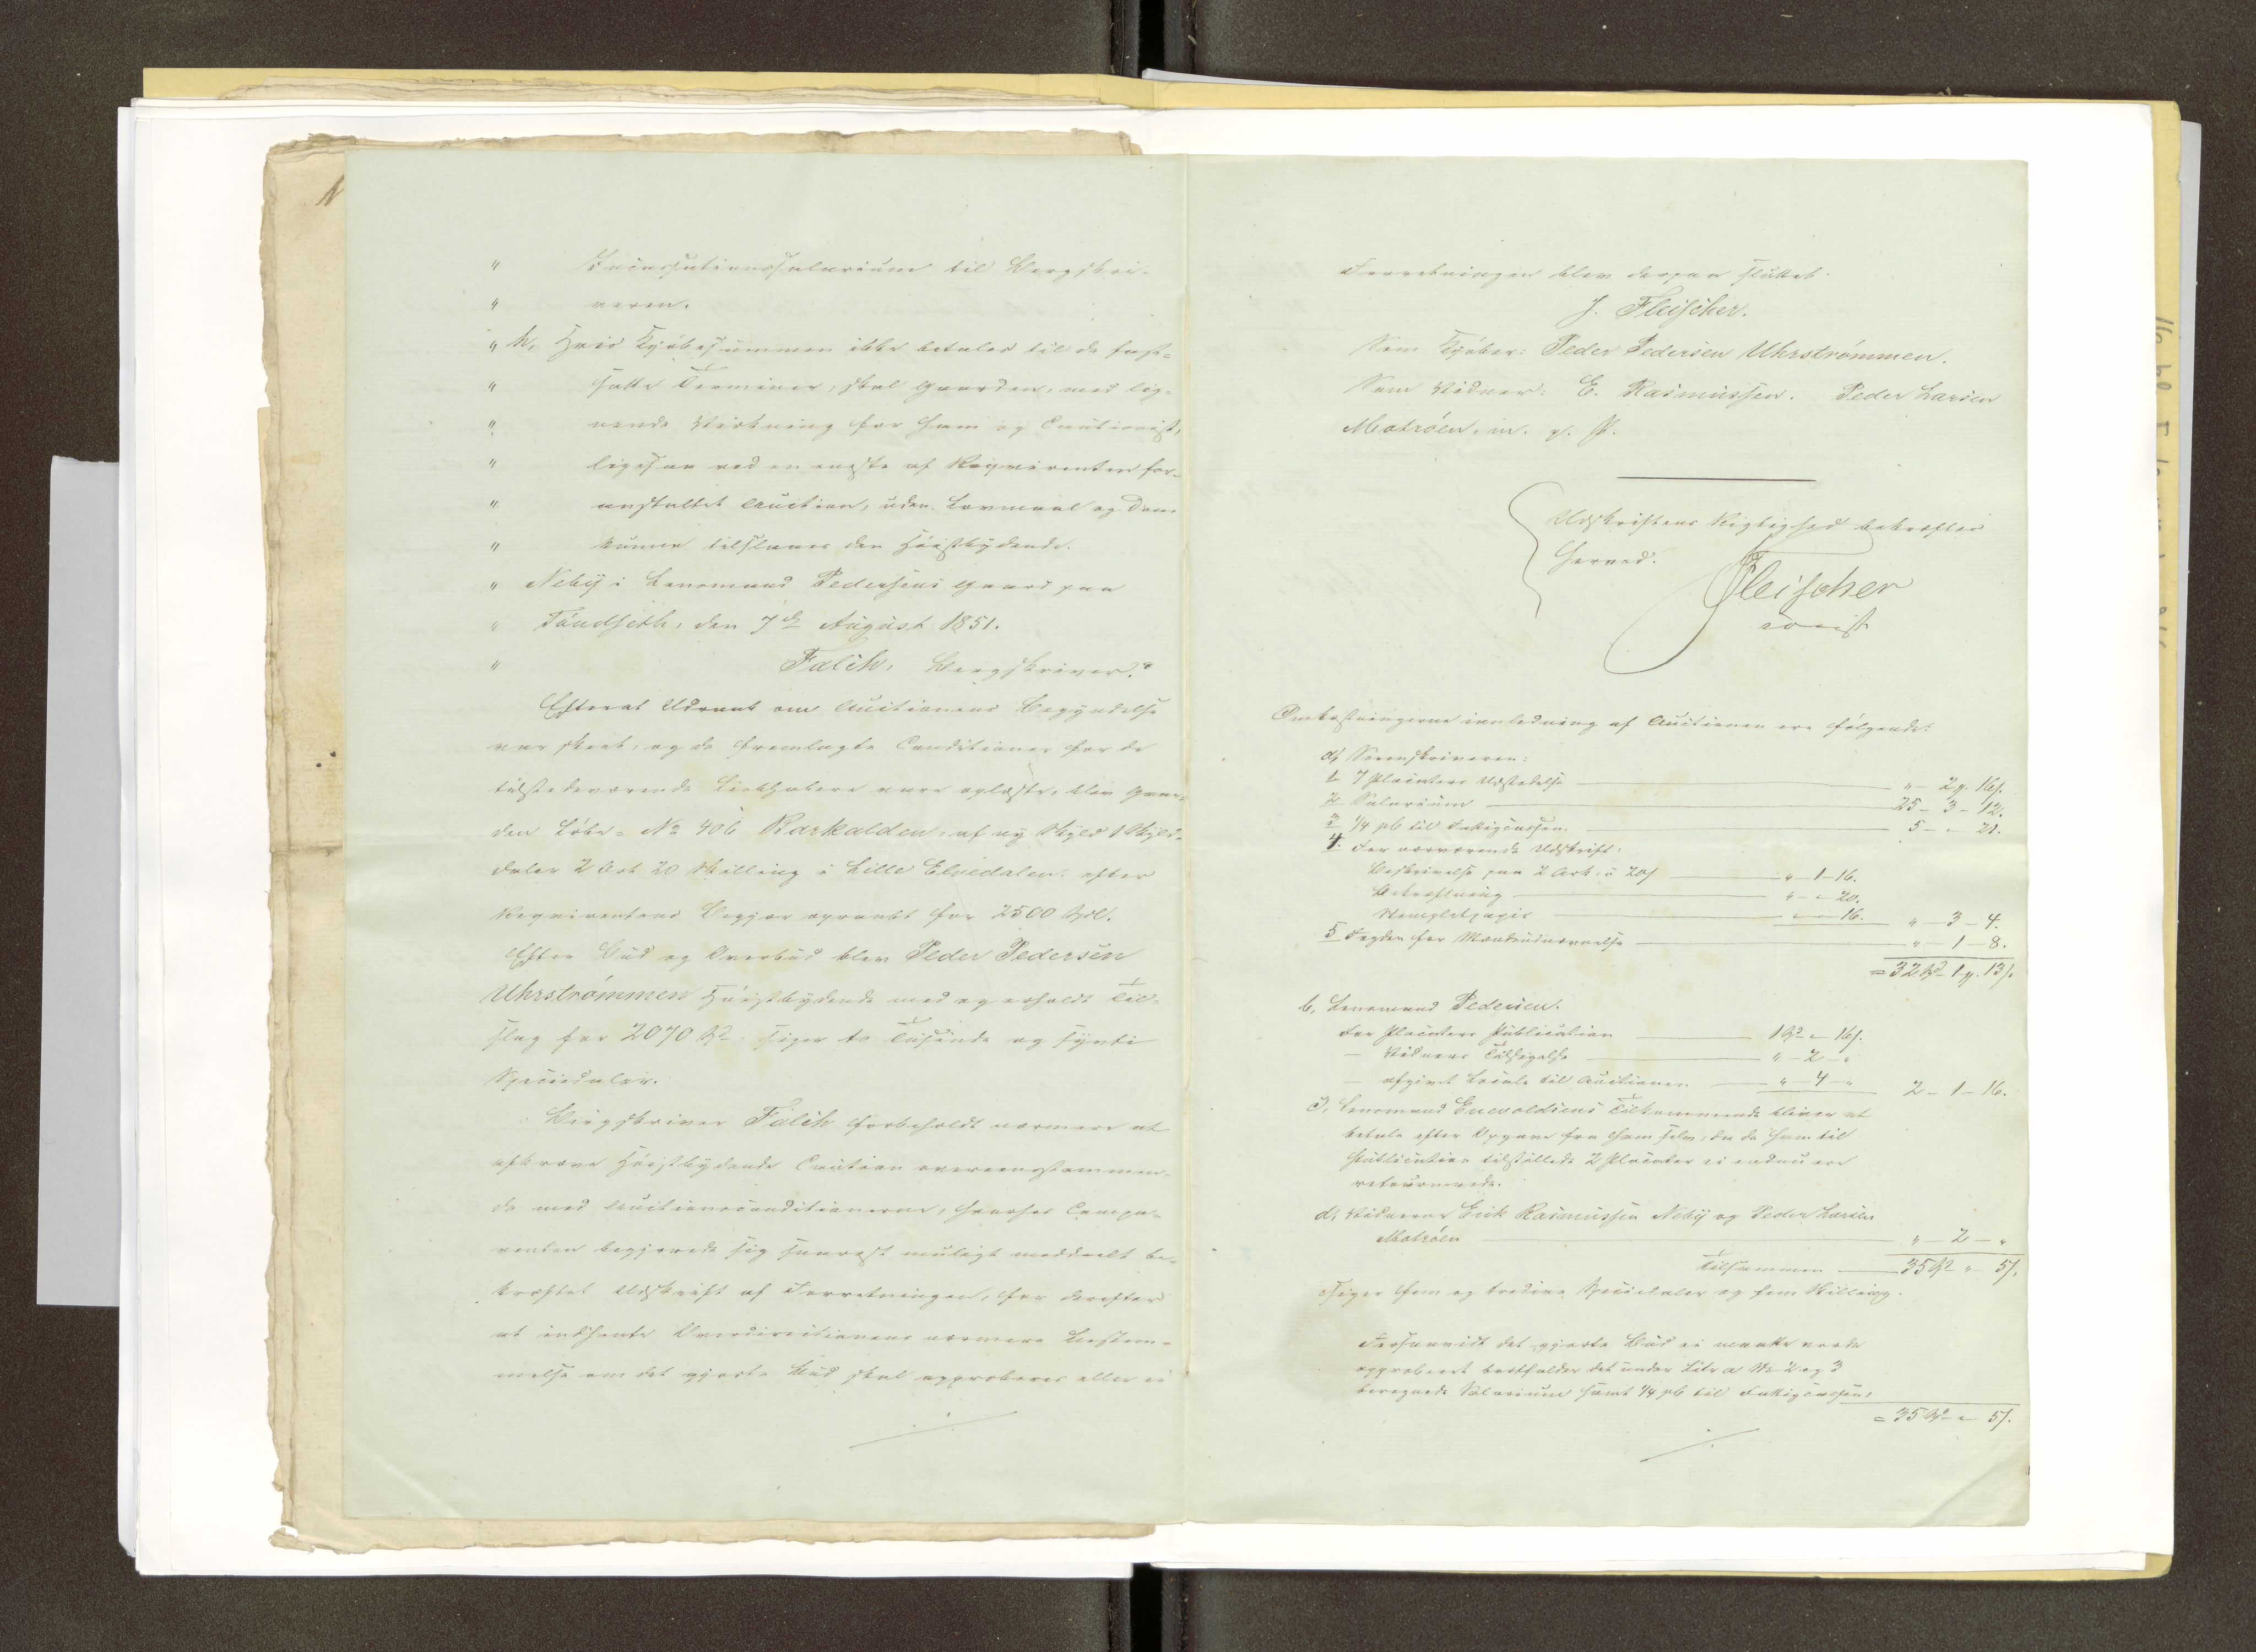 " Incassationssalarium til Bergskri-
" veren.
" h, Hvis Kjøbesummen ikke betales til de fast-
" satte Terminer, skal Gaarden, med lig-
" nende Virkning for ham og Cautionist,
" ligesaa ved en eneste af Reqvirenten for-
" anstaltet Auction, uden Lovmaal og Dom
" kunne tilslaaes den Høistbydende.
" Neby i Lensmand Pedersens Gaard paa
" Tøndseth, den 7de August 1851.
" Falch, Bergskriver."
Efterat Udraab om Auctionens Begyndelse
var skeet, og de fremlagte Conditioner for de
tilstedeværende Liebhabere vare oplæste, blev Gaar-
den Løbe-No 406 Barkalden, af ny Skyld 1 Skyld-
daler 2 Ort 20 Skilling i Lille Elvedalen efter
Reqvirentens Begjær opraabt for 2500 Spd.
Efter Bud og Overbud blev Peder Pedersen
Uhrstrømmen Høistbydende med og erholdt Til-
slag for 2070 Spd, siger to Tusinde og sytti
Speciedaler.
Bergskriver Falch forbeholdt nærmere at
afkræve Høistbydende Caution overeensstemmen-
de med Auctionsconditionerne, hvorhos Compa-
renten begjærede sig snarest muligt meddeelt be-
kræftet Udskrift af Forretningen, for derefter
at indhente Overdirectionens nærmere Bestem-
melse om det gjorte Bud skal approberes eller ei
./.
Forretningen blev derpaa sluttet.
J. Fleischer.
Som Kjøber: Peder Pedersen Uhrstrømmen.
Som Vidner: E. Rasmussen. Peder Larsen
Motrøen, m. p. P.
Udskriftens Rigtighed bekræftes
herved.
Fleischer
const
Omkostningerne i anledning af Auctionen ere følgende:
a, Sorenskriveren:
1 7 Placaters Udstedelse " - 2 - 16 s.
2 Salarium 25 - 3 - 12.
3 1/4 pC til Fattigcassen 5 - " - 21.
4. For nærværende Udskrift:
Beskrivelse paa 2 Ark à 20 s " - 1 - 16.
Bekræftning " - " - 20.
Stempletpapir " - 16. " - 3 - 4.
5 Fogden for Mændsudnævnelse " - 1 - 8.
= 32 Spd - 1 - 13 s.
b, Lensmand Pedersen.
For Placaters Publication 1 Spd - " - 16 s.
- Vidners Tilsigelse " - 2 - "
- afgivet Locale til Auctionen " - 4 - " 2 - 1 - 16.
c, Lensmand Enevoldsens Tilkommende bliver at
betale efter Opgave fra ham selv, da de ham til
Publication tilstillede 2 Placater ei endnu ere
retournerede.
d, Vidnerne Erik Rasmussen Neby og Peder Larsen
Motrøen " - 2 - "
Tilsammen 35 Spd " - 5 s.
siger fem og tredive Speciedaler og fem Skilling.
Forsaavidt det gjorte Bud ei maatte vorde
approberet bortfalder det under Litr a No 2 og 3
beregnede Salarium samt 1/4 pC til Fattigcassen,
= 35 Spd - " - 5 s.
./.